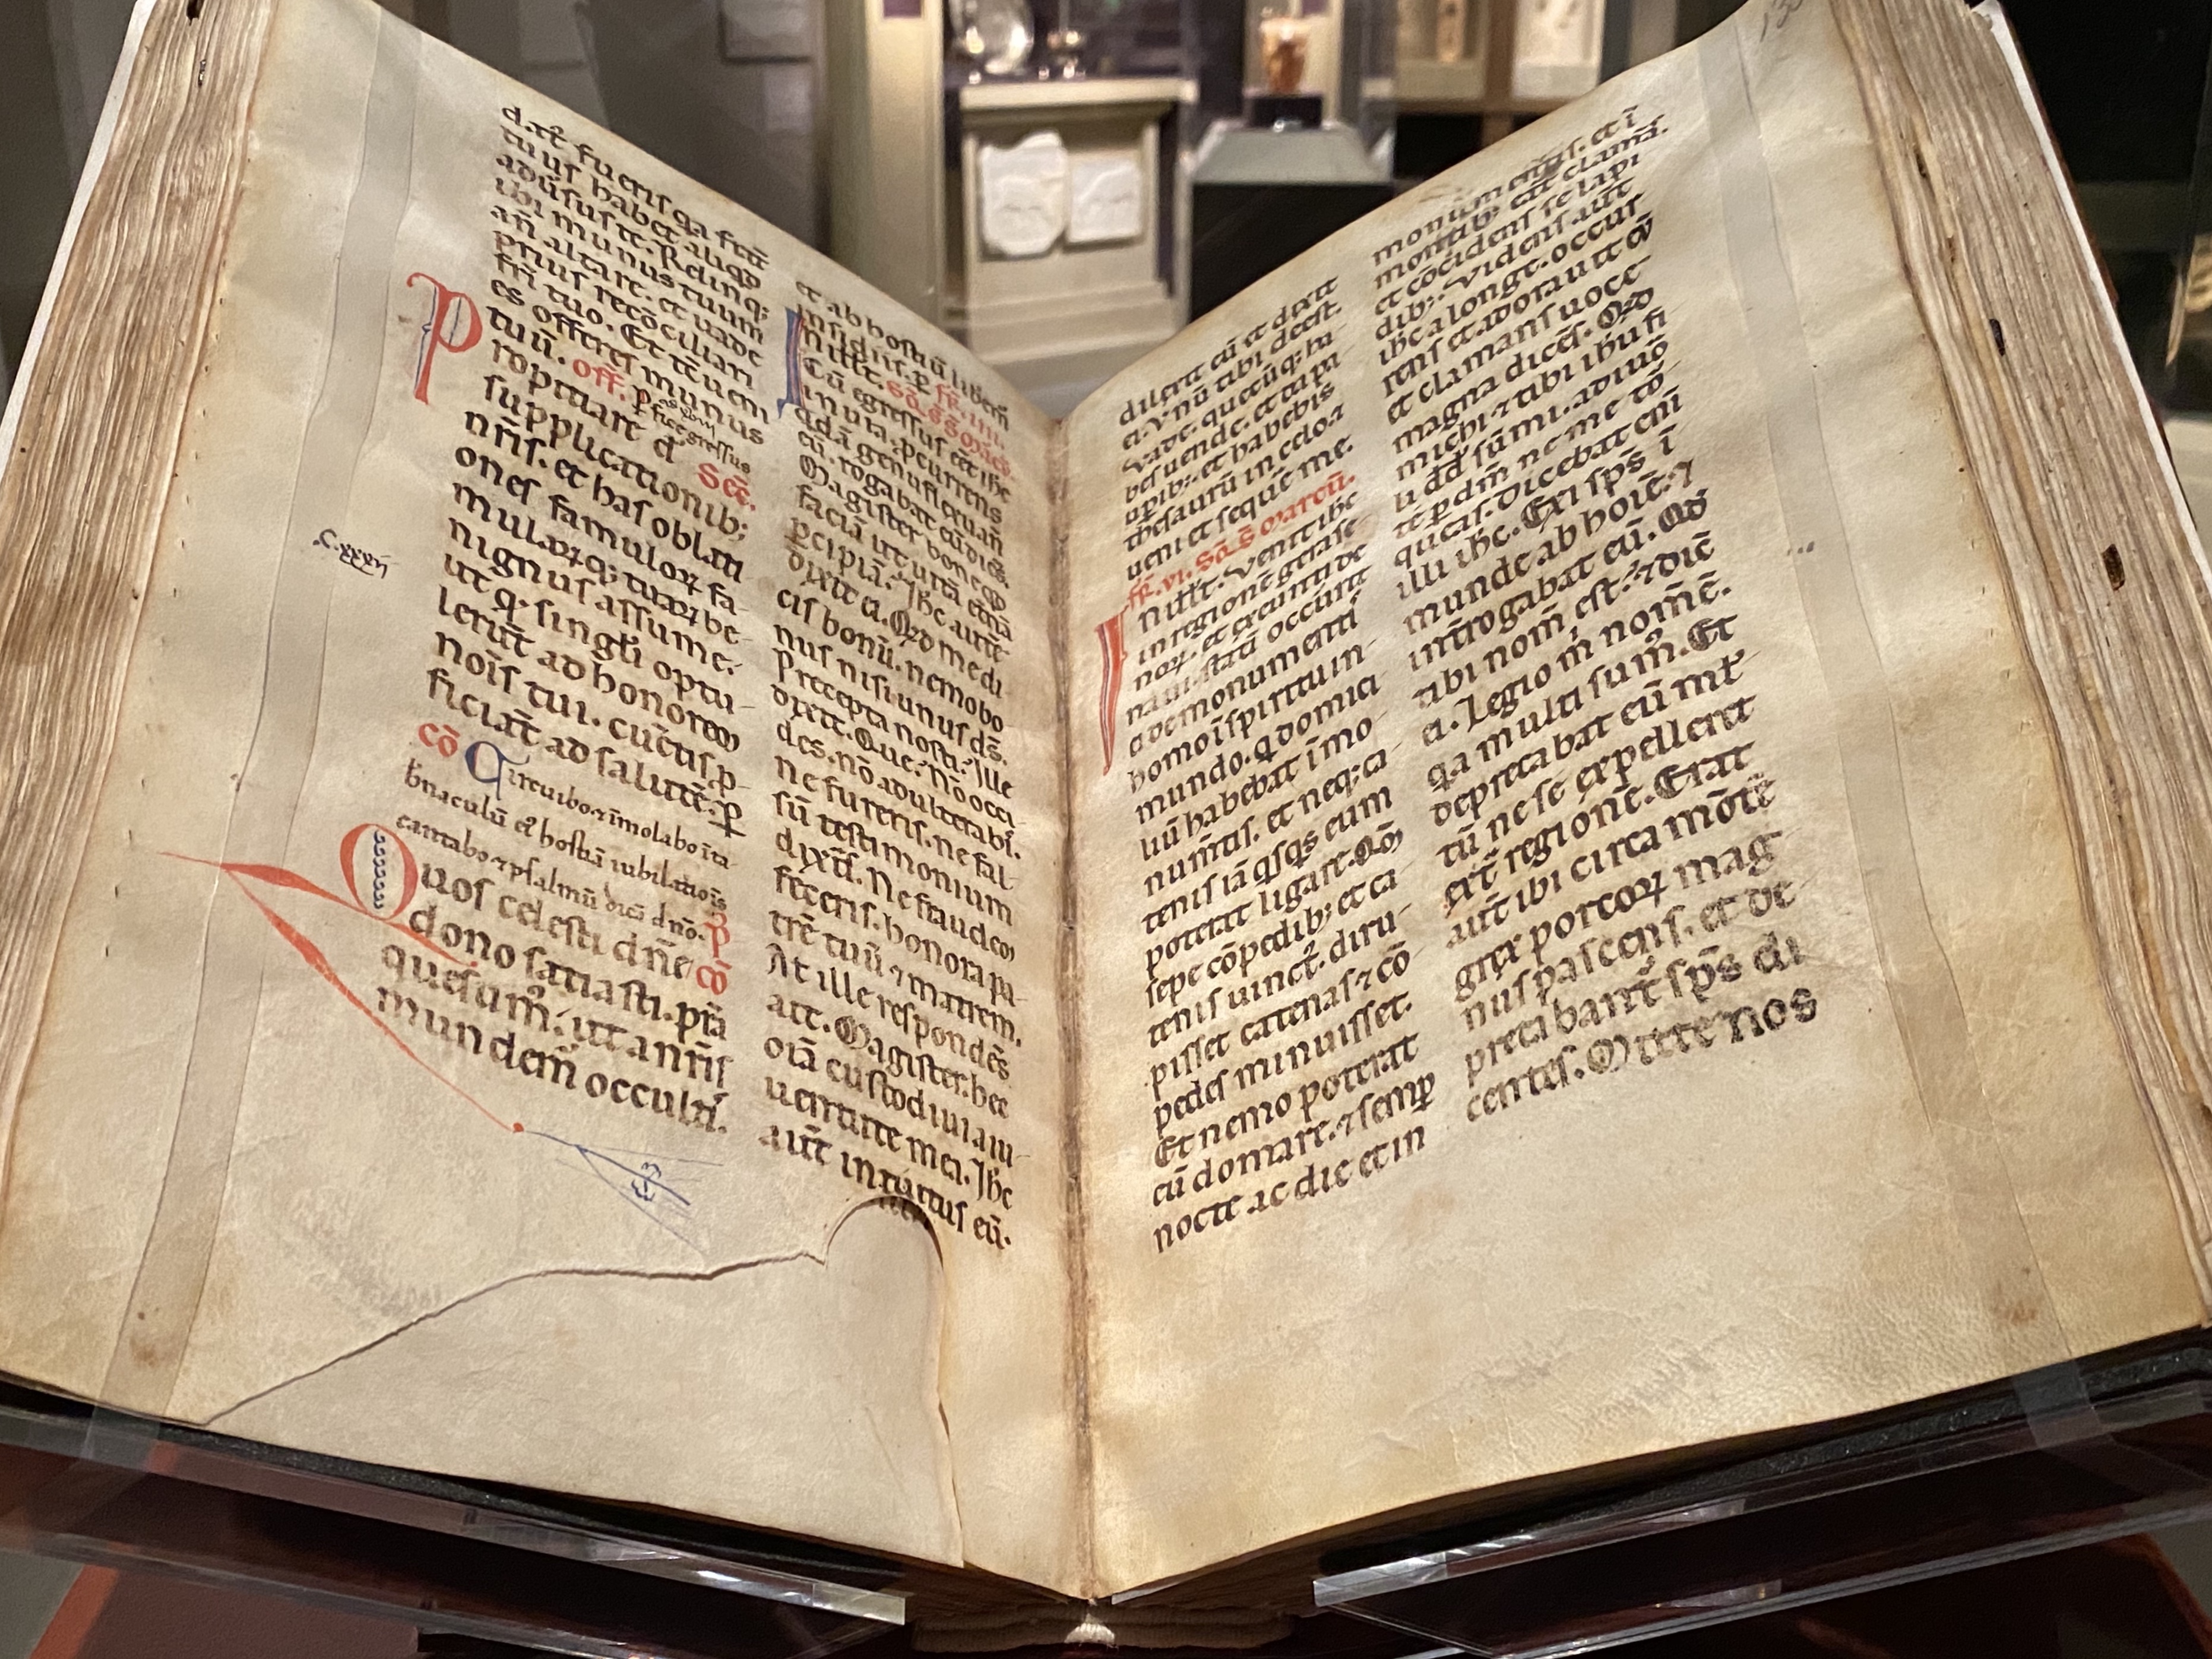 dat̄ fueris qa frr̄
tuus habet aliqd
adúsus te. Relinq;
ibi munus tuum
añ altare. et uade
prius recōciliari
fr̄i tuo. Et tē uem
es offeres munus
tuū. off. ꝑ fice gressus
Propitiare d̄ Sec̄.
supplicationib;
nr̄is. et has oblati
ones famuloꝝ fa-
mulaꝝq; tuaꝝ be-
nignus assume.
ut q. singli optu-
lerūt ad honorem
nois tui. cūctis ꝓ-
ficiat̄ ad salutē. ꝑ
cō Circuibo ⁊ īmolabo ī ta
b̄naculū eꝰ hostiā iubilatiōis
cantabo ⁊ psalmū dicā dño. P
Quos celesti dñe cō
dono satiasti. pr̄a
quesum᷒. ut a nr̄is
mundem᷒ occulti.
C. xxxij
et ab hostiū liberem᷒
insidiis. ꝑ fr̄. iiii.
In illt̄. Scd̄. s̄. Marc̄.
Cū egressus eēt ihc
in uia. ꝓcurrens
qdā genuflexu añ
eū. rogabat eū dicēs.
Magister bone qd
faciā ut uitā etnā
ꝑcipiā. Ihc autē
dixit ei. Qd me di
cis bonū. nemo bo
nus nisi unus ds̄.
Precepta nosti. Ille
dixit. Que. Nō occi
des. nō adulterabi.
ne fureris. ne fal
sū testimonium
dixis̄. Ne fraudem
fēceris. honora pa-
trē tuū ⁊ matrem.
At ille respondēs
ait. Magister. hec
oīa custodiui a iu-
uentute mea. Ihc
aut̄ intuitus eū.
dilexit eū et dixit
ei. Vnū tibi deest.
Vade. quecūq; ha
bes uende. et da pa
uꝑib;. et habebis
thesaurū in celo. ⁊
ueni et sequē me.
fr̄. vi. Scd̄. s̄. Marcū.
In illt̄. Venit ihc
in regionē gerase
noꝝ. et exeunti de
naui. statī occurrt
ei de monumenti
homo ī spiritu in-
mundo. q domici
liū habebat ī mo
num̄tis. et neq; ca
tenis iā qsqs eum
poterat ligare. Qm̄
sepe cōpedib; et ca
tenis uinct᷒. diru-
pisset catenas ⁊ cō
pedes minuisset.
Et nemo poterat
eū domare. ⁊ semꝑ
nocte ac die et in
monumentis. et ī
montib; erat clamā.
et cōcidens se lapi
dib;. Videns aut̄
ihc a longe. occur
rens et adorauit eū
et clamans uoce
magna dicēs. Qd
michi ⁊ tibi ihu fi
li dd̄ sūmi. adiuro
te ꝑ dm̄ ne me tor
queas. Dicebat eīn
illi ihc. Exi sp̄s ī
munde ab hoīe. ⁊
introgabat eū. Qd
tibi nom̄ est. ⁊ diē
ei. Legio m̄ nom̄ ē.
qa multi sum᷒. Et
deprecabat eū ml̄
tū ne se expelleret
ext̄ regionē. Erat
aut̄ ibi circa mōtē
grex porcoꝝ mag
nus pascens. et de
precabant᷒ sp̄s eū
centes. Mitte nos